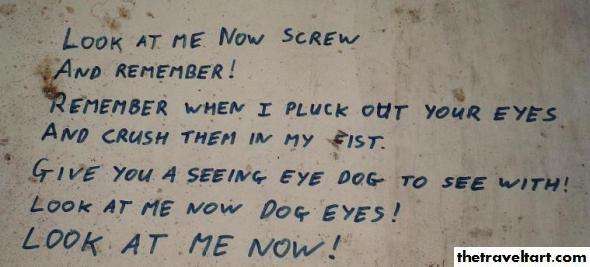 LOOK AT ME NOW SCREW
AND REMEMBER!
REMEMBER WHEN I PLUCK OUT YOUR EYES
AND CRUSH THEM IN MY FIST.
GIVE YOU A SEEING EYE DOG TO SEE WITH!
LOOK AT ME NOW DOG EYES!
LOOK AT ME NOW!
thetraveltart.com